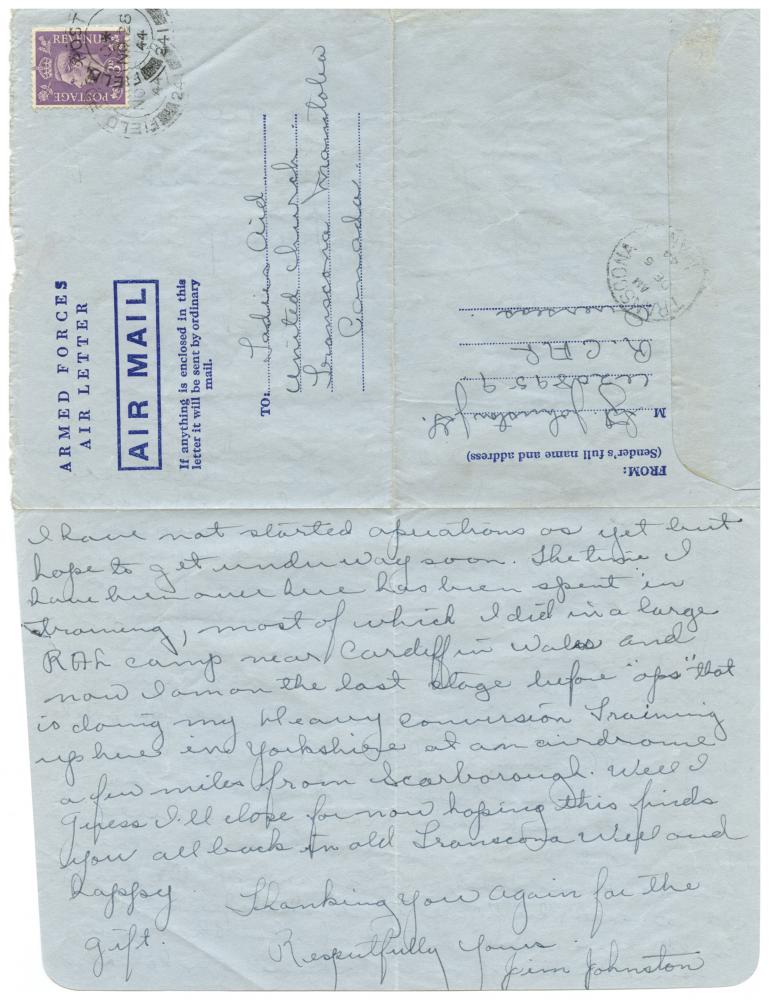 ARMED FORCES
AIR LETTER
AIR MAIL
If anything is enclosed in this
letter it will be sent by ordinary
mail.
TO:
Ladies Aid
United Church
Transcona Manitoba
Canada.
REVENUE
POSTAGE
FIELD POST
NO 26
44
241
FROM:
(Sender's full name and address)
M
Johnston J.G.
R.C.A.F.
Overseas
TRANSCONA
AM
DE 5
44
MAN
I have not started opuations as yet but
hope to get underway soon. The time I
have been over here has been spent in
training, most of which I did in a large
RAF camp near Cardiff in Wales and
now I am on the last stage before "ops" that
is doing my Heavy conversion Training
up here in Yorkshire at an airdrome
a few miles from Scarborough. Well I
guess I'll close for now hoping this finds
you all back in old Transcona Well and
happy. Thanking you again for the
gift.
Respectfully yours
Jim Johnston